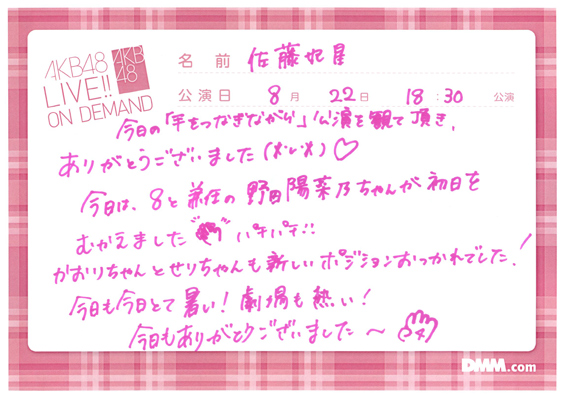 AKB48
LIVE!!
ON DEMAND
AKB
48
名前 佐藤妃星
公演日 8月 22日 18:30 公演
今日の「手をつなぎながら」公演を観て頂き、
ありがとうございました(めしめ)♡
今日は、8と兼任の野田陽菜乃ちゃんが初日を
むかえました パチパチ!!
かおりちゃんとせりちゃんも新しいポジションおつかれでした!
今日も今日とて暑い!劇場も熱い!
今日もありがとうございました〜
DMM.com